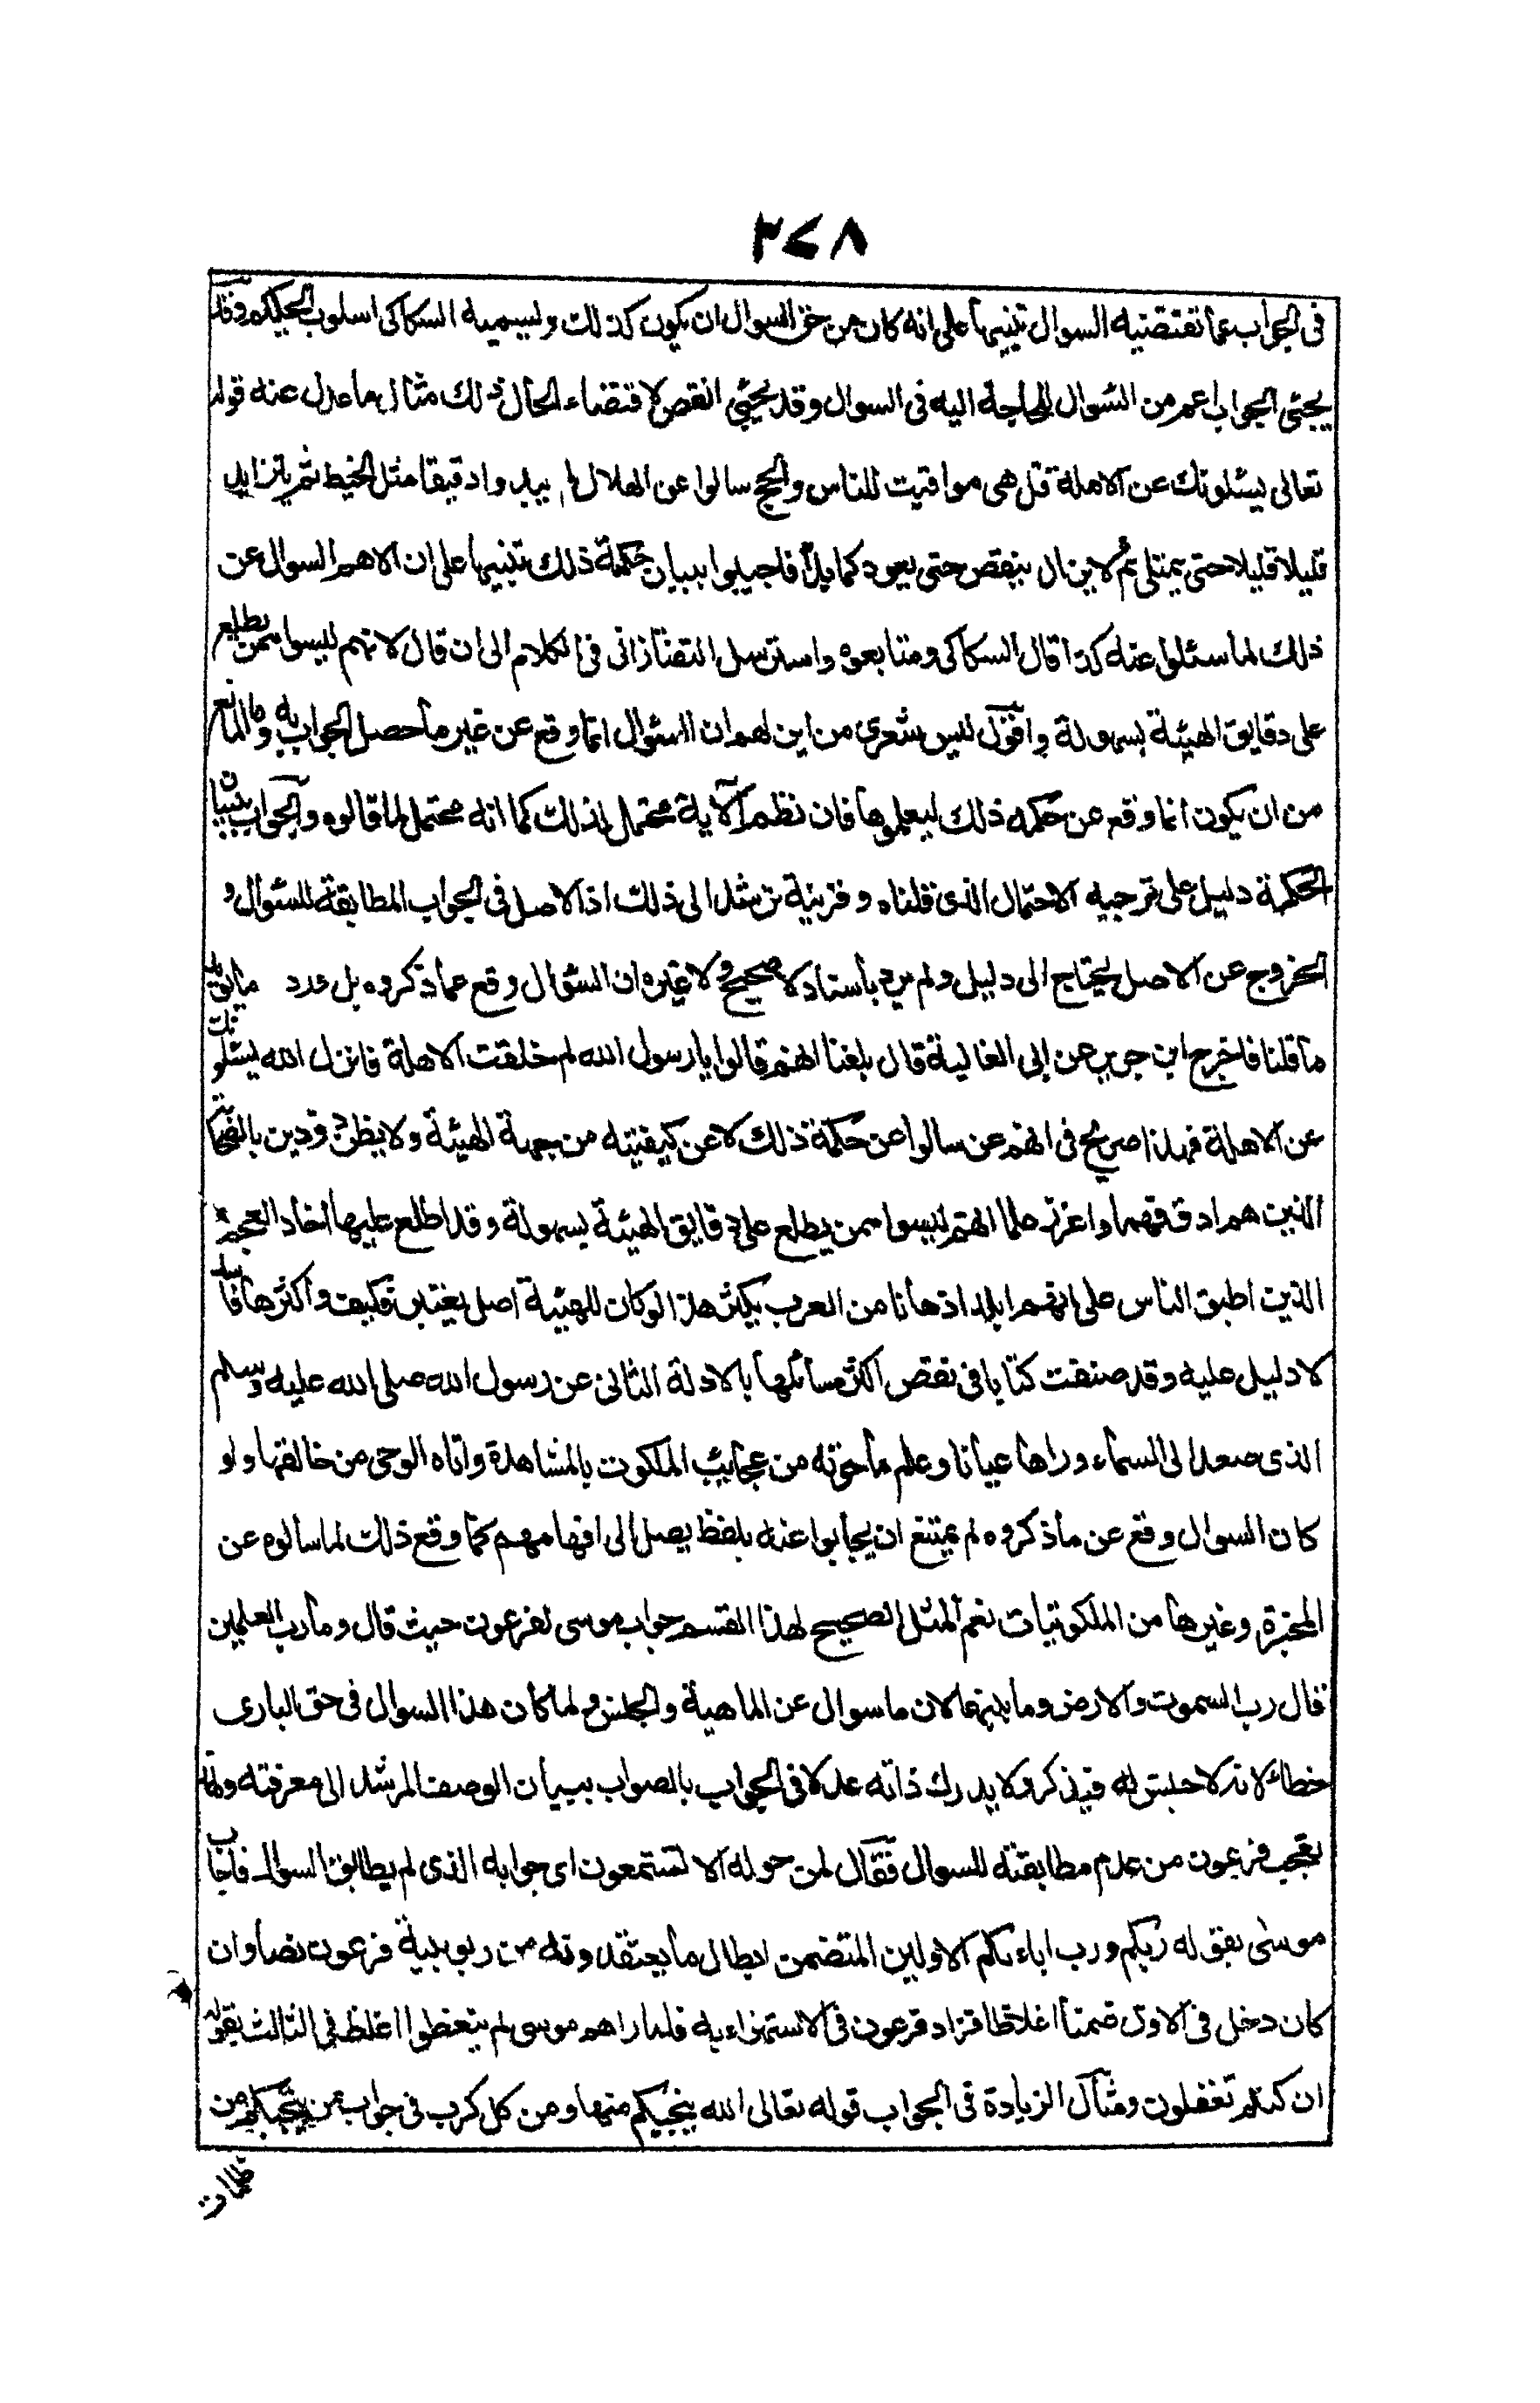 ٣٧٨
فى الجواب عما تقتضيه السوال تنبيها على انه كان من حق السوال ان يكون كذلك ويسميه السكاكى اسلوب الحكيم وقد
يجئى الجواب اعم من السوال للحاجة اليه فى السوال وقد يجيئ انقص لاقتضاء الحال ذلك مثال ما عدل عنه قوله
تعالى يسئلونك عن الاهلة قل هى مواقيت للناس والحج سالوا عن الهلال لم يبدوا دقيقا مثل الخيط ثم يتزايد
قليلا قليلا حتى يمتلى ثم لا يزال ينقص حتى يعود كما بدأ فاجيبوا ببيان حكمة ذلك تنبيها على ان الاهم السوال عن
ذلك لما سئلوا عنه كذا قال السكاكى ومتابعوه واسترسل التفتازانى فى الكلام الى ان قال لانهم ليسوا ممن يطلع
على دقايق الهيئة بسهولة واقول ليس شعرى من اين لهم ان السئوال انما وقع عن غير ما حصل الجواب به وما المانع
من ان يكون انما وقع عن حكمه ذلك ليعلموها فان نظم الآية محتمل لذلك كما انه محتمل لما قالوه والجواب ببيان
الحكمة دليل على ترجيه الاحتمال الذى قلناه وقرينة ترشد الى ذلك اذ الاصل فى الجواب المطابقة للسئوال و
الخروج عن الاصل يحتاج الى دليل ولم يرد باسناد لا صحيح ولا غيره ان السئوال وقع عما ذكروه بل ورد ما يؤيد
ما قلنا فاخرج ابن جرير عن ابى العالية قال بلغنا انهم قالوا يا رسول الله لم خلقت الاهلة فانزل الله يسئلونك
عن الاهلة فهذا صريح فى انهم عن سالوا عن حكمة ذلك لا عن كيفيته من جهة الهيئة ولا يظن ذو دين بالصحابة
الذين هم ادق فهما واغزر علما انهم ليسوا ممن يطلع على دقايق الهيئة بسهولة وقد اطلع عليها احاد العجم
الذين اطبق الناس على انهم ابلد اذهانا من العرب بكثير هذا لو كان للهيئة اصل يعتبر فكيف واكثرها فاسد
لا دليل عليه وقد صنفت كتابا فى نقض اكثر مسائلها بالادلة الثانى عن رسول الله صلى الله عليه وسلم
الذى صعد الى السماء وراها عيانا وعلم ما حوته من عجايب الملكوت بالمشاهدة واتاه الوحى من خالقها ولو
كان السوال وقع عن ما ذكروه لم يمتنع ان يجابوا عنه بلفظ يصل الى افهامهم كما وقع ذلك لما سالوه عن
المجرة وغيرها من الملكوتيات نعم المثل الصحيح لهذا القسم جواب موسى لفرعون حيث قال وما رب العلمين
قال رب السموت والارض وما بينهما لان ما سوال عن الماهية والجنس ولما كان هذا السوال فى حق البارى
خطاء لانه لا جنس له فيذكر ولا يدرك ذاته عدل فى الجواب بالصواب ببيان الوصف المرشد الى معرفته ولهذا
تعجب فرعون من عدم مطابقته للسوال فقال لمن حوله الا تستمعون اى جوابه الذى لم يطابق السوال فاجاب
موسى بقوله ربكم ورب اباءكم الاولين المتضمن ابطال ما يعتقدونه من ربوبية فرعون نصا وان
كان دخل فى الاول ضمنا اغلاظا فزاد فرعون فى الاستهزاء به فلما راهم موسى لم يتفطنوا اغلظ فى الثالث بقوله
ان كنتم تعقلون ومثال الزيادة فى الجواب قوله تعالى الله ينجيكم منها ومن كل كرب فى جواب من ينجيكم من
ظلمات